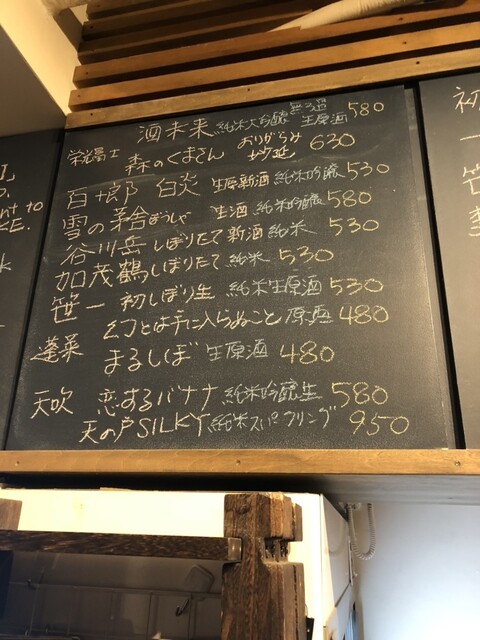 酒未来 純米大吟醸 無ろ過 生原酒 580
栄光冨士 森のくまさん おりがらみ 630
百十郎 白炎 生原新酒 純米吟醸 530
雪の茅舎 生酒 純米吟醸 580
谷川岳 しぼりたて新酒 純米 530
加茂鶴 しぼりたて 純米 530
笹一 初しぼり生 純米生原酒 530
とは手に入らぬこと 原酒 480
蓬莱 まるしぼ 生原酒 480
天吹 恋するバナナ 純米吟醸生 580
天の戸SILKY 純米スパークリング 950